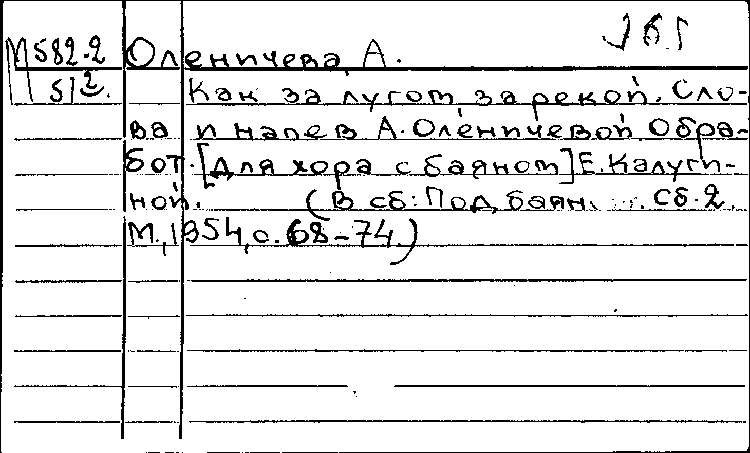 М582.2 Оленичева, А.
51 2. Как за лугом, за рекой. Сло-
ва и напев А. Оленичевой Обра-
бот. [Для хора с баяном] Е. Калуги-
ной. (В сб: Под баян.... Сб. 2.
М., 1954, с. 68-74.)